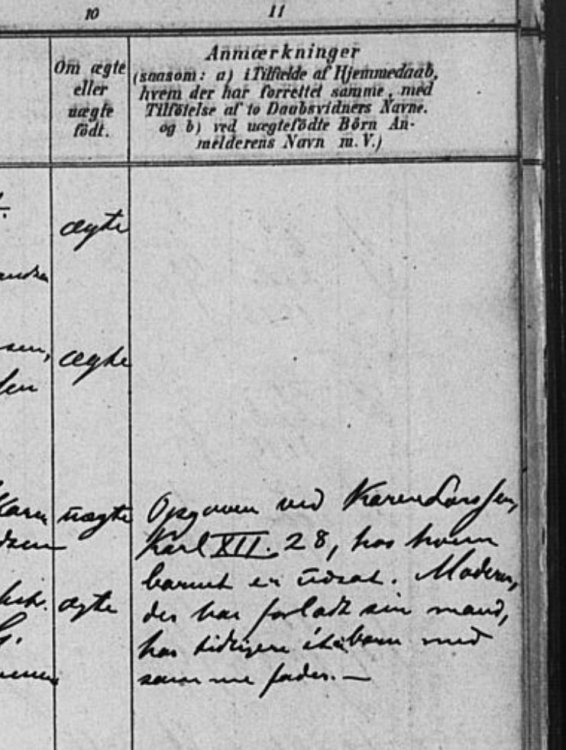 10 11
Om ægte
eller
uægte
født.
Anmærkninger
(saasom: a) i Tilfælde af Hjemmedaab,
hvem der har forrettet samme, med
Tilføielse af to Daabsvidners Navne.
og b) ved uægtefødte Börn An-
melderens Navn m.V.)
ægte
ægte
sen,
sen
Karen uægte Opgaven ved Karen Larssen,
Karl XII. 28, hos hvem
barnet er udsat. Moderen,
ægte der har forladt sin mand,
har tidligere barn med
samme fader. —